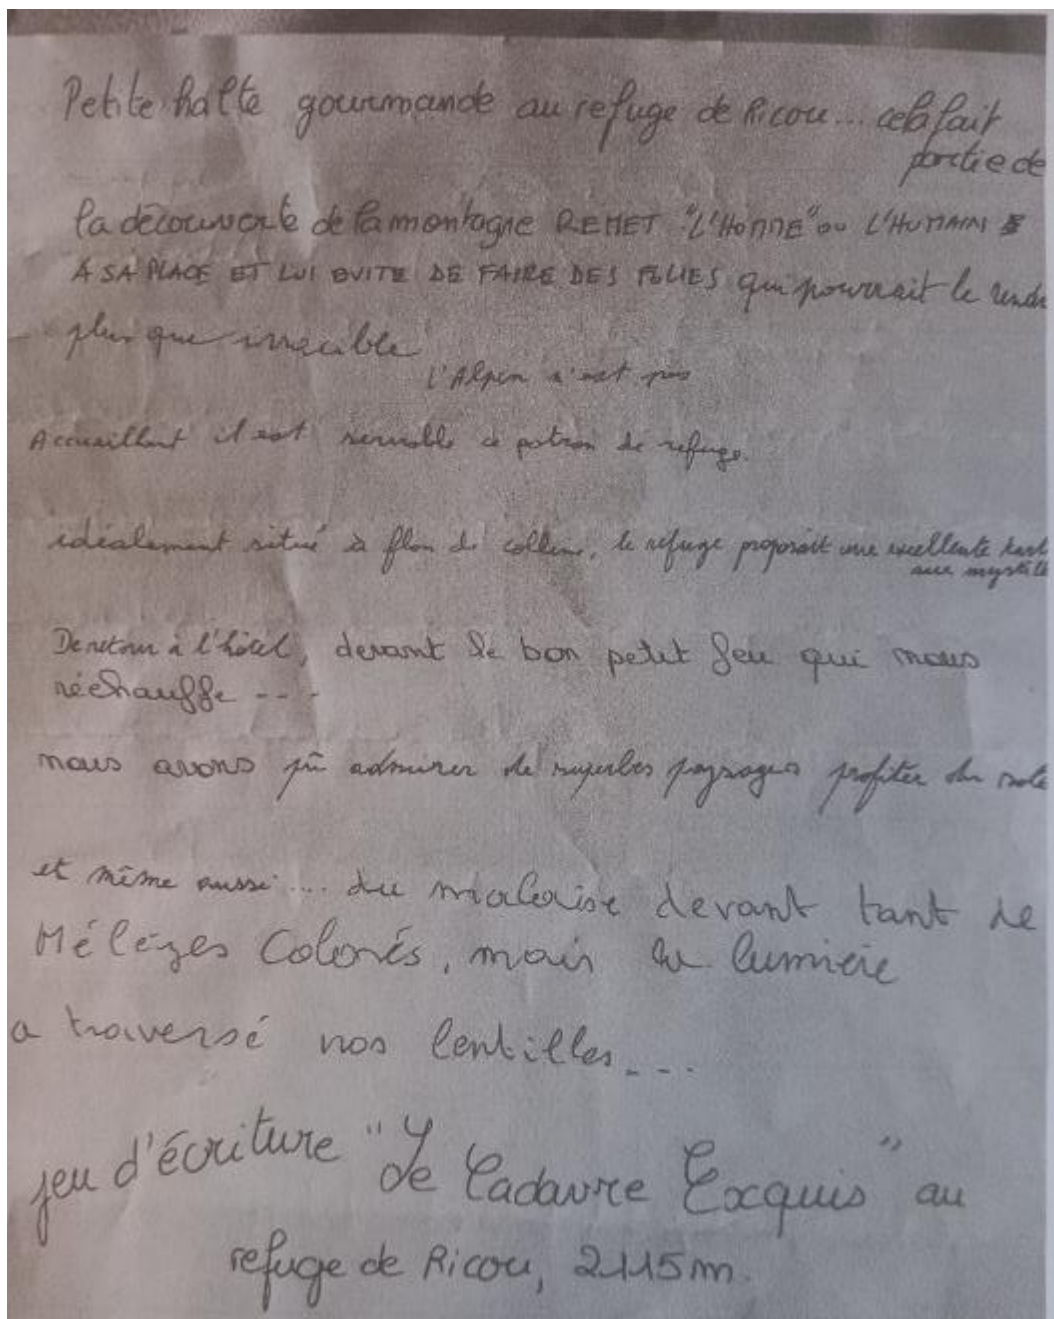 Petite halte gourmande au refuge de Ricou... cela fait
partie de
la découverte de la montagne REMET "L'HOMME" OU L'HUMAIN
A SA PLACE ET LUI EVITE DE FAIRE DES FOLIES qui pourrait le rendre
plus que irascible
l'Alpin n'est pas
Accueillant il est serviable ce patron de refuge.
idéalement situé à flan de colline, le refuge proposait une excellente tarte
aux myrtille
De retour à l'hôtel, devant le bon petit feu qui nous
réchauffe ---
nous avons pû admirer de superbes paysages profiter du
et même aussi... du malaise devant tant de
Mélèzes Colorés, mais la lumière
a traversé nos lentilles....
jeu d'écriture "Le Cadavre Exquis" au
refuge de Ricou, 2115m.